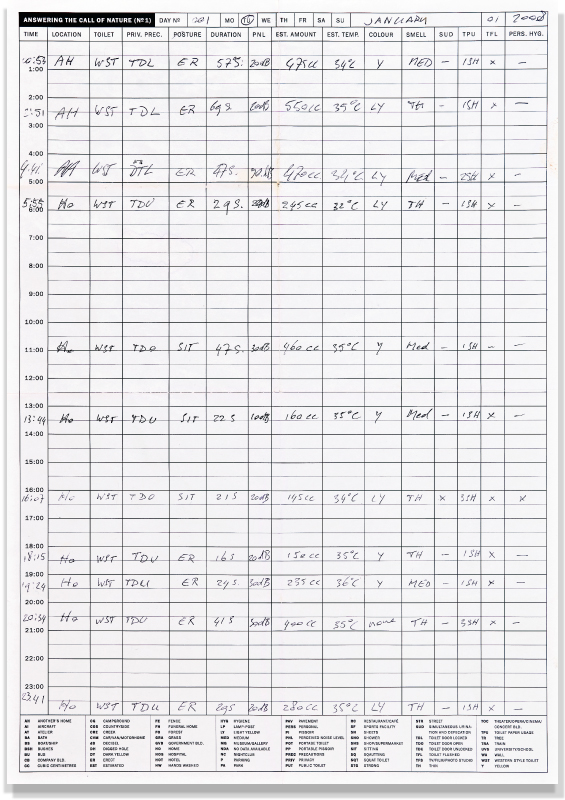 ANSWERING THE CALL OF NATURE (Nº 1) DAY Nº 001 MO TU WE TH FR SA SU JANUARY 01 2008
TIME LOCATION TOILET PRIV. PREC. POSTURE DURATION PNL EST. AMOUNT EST. TEMP. COLOUR SMELL SUD TPU TFL PERS. HYG.
AH WST TDL ER 57S. 20dB 475cc 34°C Y MED – 1SH x –
1:00
2:51 AH WST TDL ER 69S 550cc 35°C LY TH – 1SH x –
3:00
4:00
4:41 WST ER 47S. 470cc 34°C LY Med – 2SH x –
5:00
5:55 Ho WST TDU ER 29S. 245cc 32°C LY TH – 1SH x –
6:00
7:00
8:00
9:00
10:00
11:00 Ho WST TDO SIT 47S. 30dB 460cc 35°C Y Med – 1SH – –
12:00
13:00
13:44 Ho WST TDU SIT 22S 10dB 160cc 35°C Y Med – 1SH x –
14:00
15:00
16:00
16:07 Ho WST TDO SIT 21S 20dB 145cc 34°C LY TH x 3SH x x
17:00
18:00
18:15 Ho WST TDU ER 16S 20dB 150cc 35°C Y TH – 1SH x –
19:00
19:24 Ho WST TDU ER 24S 30dB 235cc 36°C Y MED – 1SH x –
20:00
20:34 Ho WST TDU ER 41S 50dB 400cc 35°C none TH – 3SH x –
21:00
22:00
23:00
23:41 Ho WST TDU ER 29S 20dB 280cc 35°C LY TH – 1SH x –
AH ANOTHER'S HOME CG CAMPGROUND FE FENCE HYG HYGIENE PAV PAVEMENT RE RESTAURANT/CAFÉ STR STREET
AI AIRCRAFT COS COUNTRYSIDE FH FUNERAL HOME LP LAMP-POST PERS PERSONAL SF SPORTS FACILITY
AT ATELIER CRE CREEK FO FOREST LY LIGHT YELLOW PI PISSOIR SH SHEETS
BA BATH GRA GRASS MED MEDIUM PNL PERCEIVED NOISE LEVEL SHO SHOWER TDL TOILET DOOR LOCKED
BS BOAT/SHIP DB DECIBEL GVB GOVERNMENT BLD. MG MUSEUM/GALLERY POT PORTABLE TOILET TDO TOILET DOOR OPEN
BUS BUSHES HO HOME NDA NO DATA AVAILABLE PP PORTABLE PISSOIR SIT SITTING TDU TOILET DOOR UNLOCKED
DY DARK YELLOW HOS HOSPITAL NC NIGHTCLUB PREC PRECAUTIONS SQ SQUATTING TFL TOILET FLUSHED
CB COMPANY BLD. ER ERECT HOT HOTEL P PARKING PRIV PRIVACY SQT SQUAT TOILET
CC CUBIC CENTIMETRES EST ESTIMATED HW HANDS WASHED PA PARK PUT PUBLIC TOILET STG STRONG TH THIN
TPU TOILET PAPER USAGE
TR TREE
TRA TRAIN
WA WALL
WST WESTERN STYLE TOILET
Y YELLOW